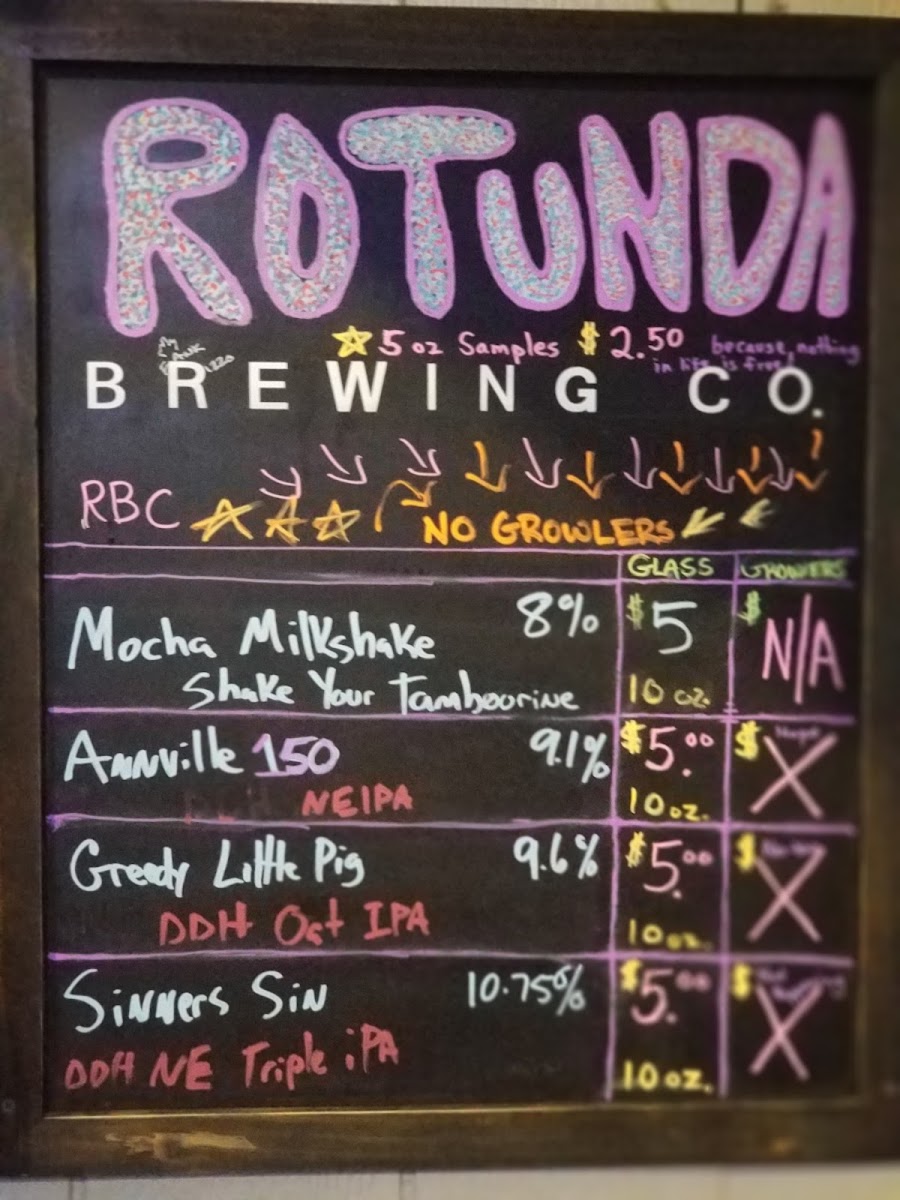 ROTUNDA
5 oz Samples $2.50 because nothing
in life is free!
BREWING CO.
RBC NO GROWLERS
GLASS GROWLERS
Mocha Milkshake 8% $5 $ N/A
Shake Your Tambourine 10 oz.
Annville 150 9.1% $5.00 $ Nope X
NEIPA 10 oz.
Greedy Little Pig 9.6% $5.00 $ X
DDH Oat IPA 10 oz.
Sinners Sin 10.75% $5.00 $ X
DDH NE Triple iPA 10 oz.